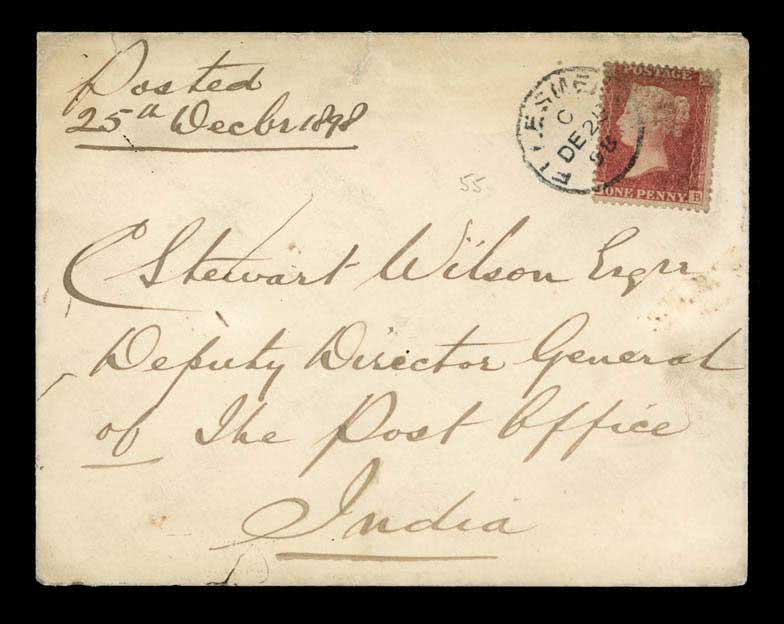 Posted
25th Decbr 1898
POSTAGE
C
DE 25
98
ONE PENNY
B
55
Stewart Wilson Esqr
Deputy Director General
of The Post Office
India